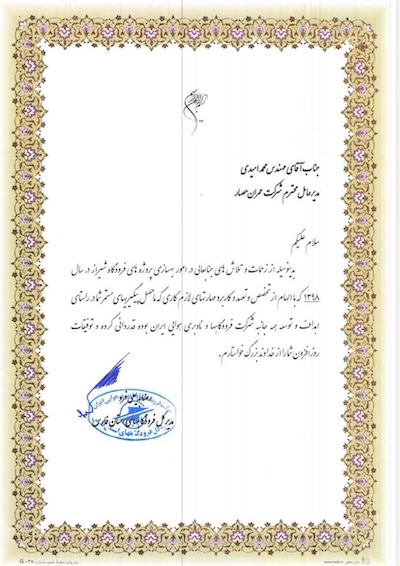 جناب آقای مهندس محمد امیدی
مدیر عامل محترم شرکت عمران حصار
سلام علیکم
بدینوسیله از زحمات و تلاش های جنابعالی در امور بهسازی پروژه های فرودگاه شیراز در سال
۱۳۹۸ که با الهام از تخصص و تعهد و کاربرد مهارتهای لازم کاری که ماحصل پیگیریهای مستمر شما در راستای
اهداف و توسعه همه جانبه شرکت فرودگاهها و ناوبری هوایی ایران بوده قدردانی کرده و توفیقات
روز افزون شما را از خداوند بزرگ خواستارم.
مدیر کل فرودگاههای استان فارس